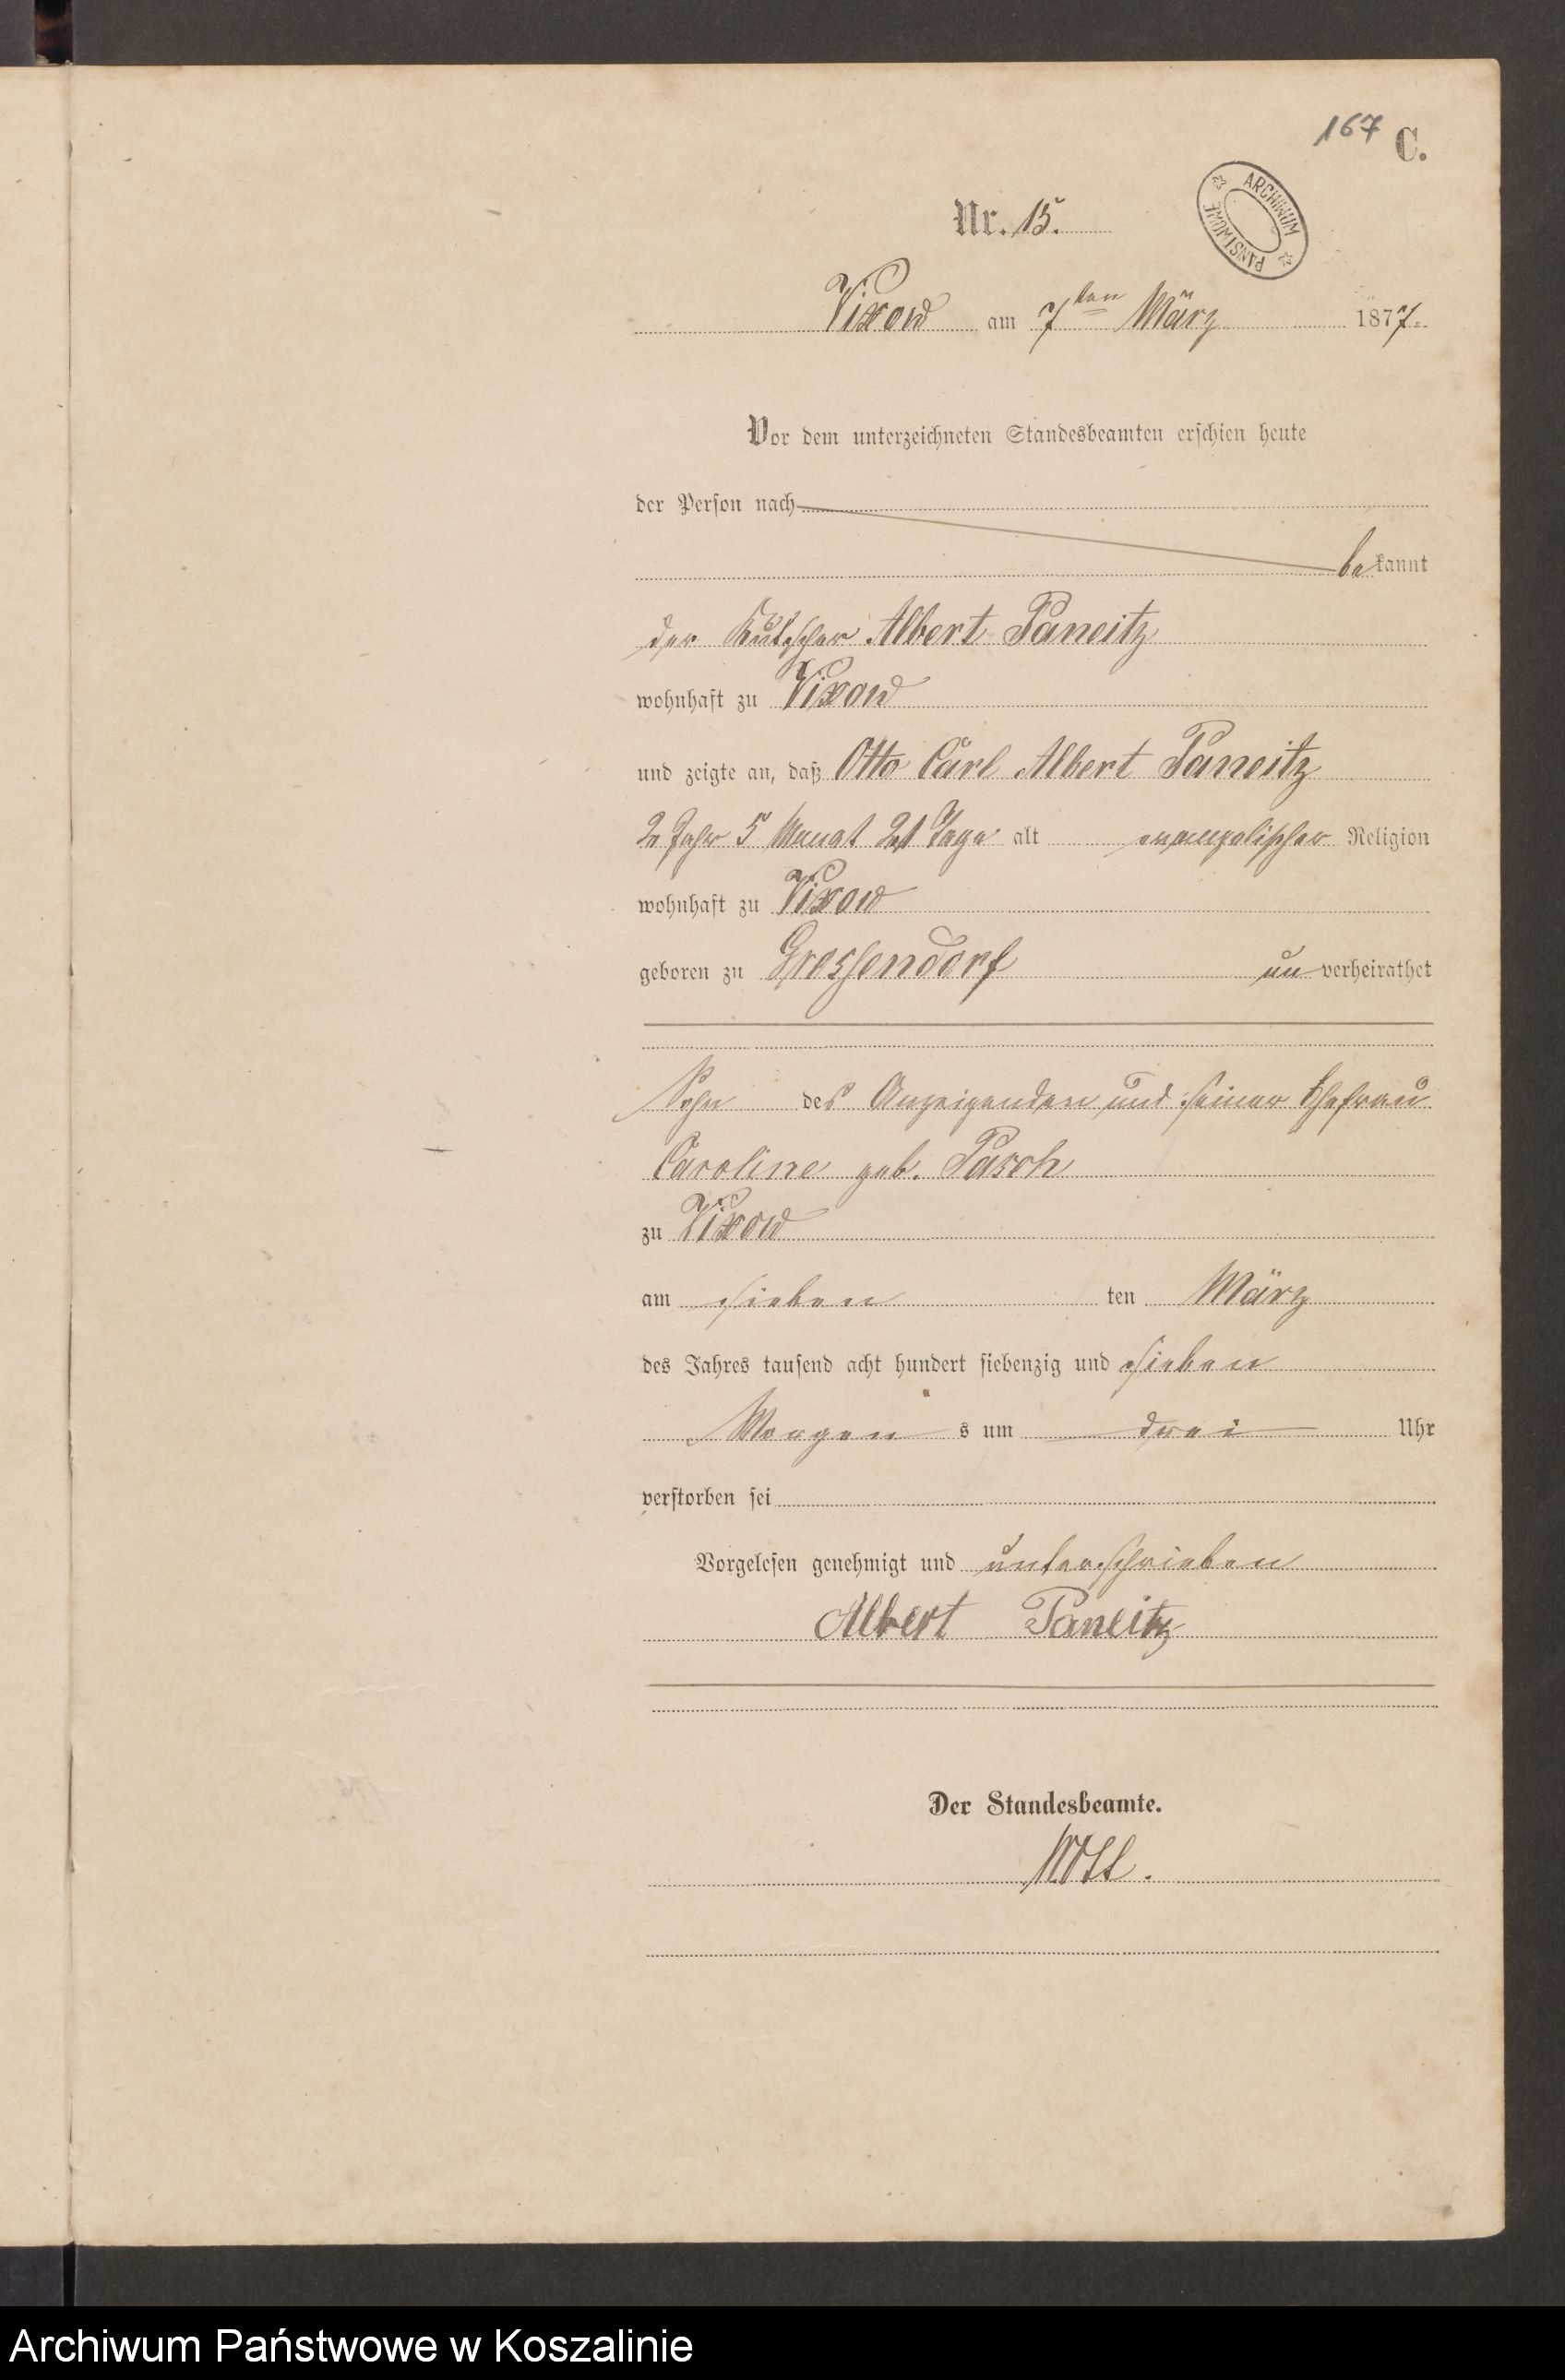 167 C.
ARCHIWUM PAŃSTWOWE
Nr. 15.
Vixow am 7ten März 1877.
Vor dem unterzeichneten Standesbeamten erschien heute
der Person nach
bekannt
der Kutscher Albert Paneitz
wohnhaft zu Vixow
und zeigte an, daß Otto Carl Albert Paneitz
2 Jahr 5 Monat 21 Tage alt evangelischer Religion
wohnhaft zu Vixow
geboren zu Grossendorf unverheirathet
Sohn des Anzeigenden und seiner Ehefrau
Caroline geb. Pasch
zu Vixow
am sieben ten März
des Jahres tausend acht hundert siebenzig und sieben
Morgens um drei Uhr
verstorben sei
Vorgelesen genehmigt und unterschrieben
Albert Paneitz
Der Standesbeamte.
Archiwum Państwowe w Koszalinie